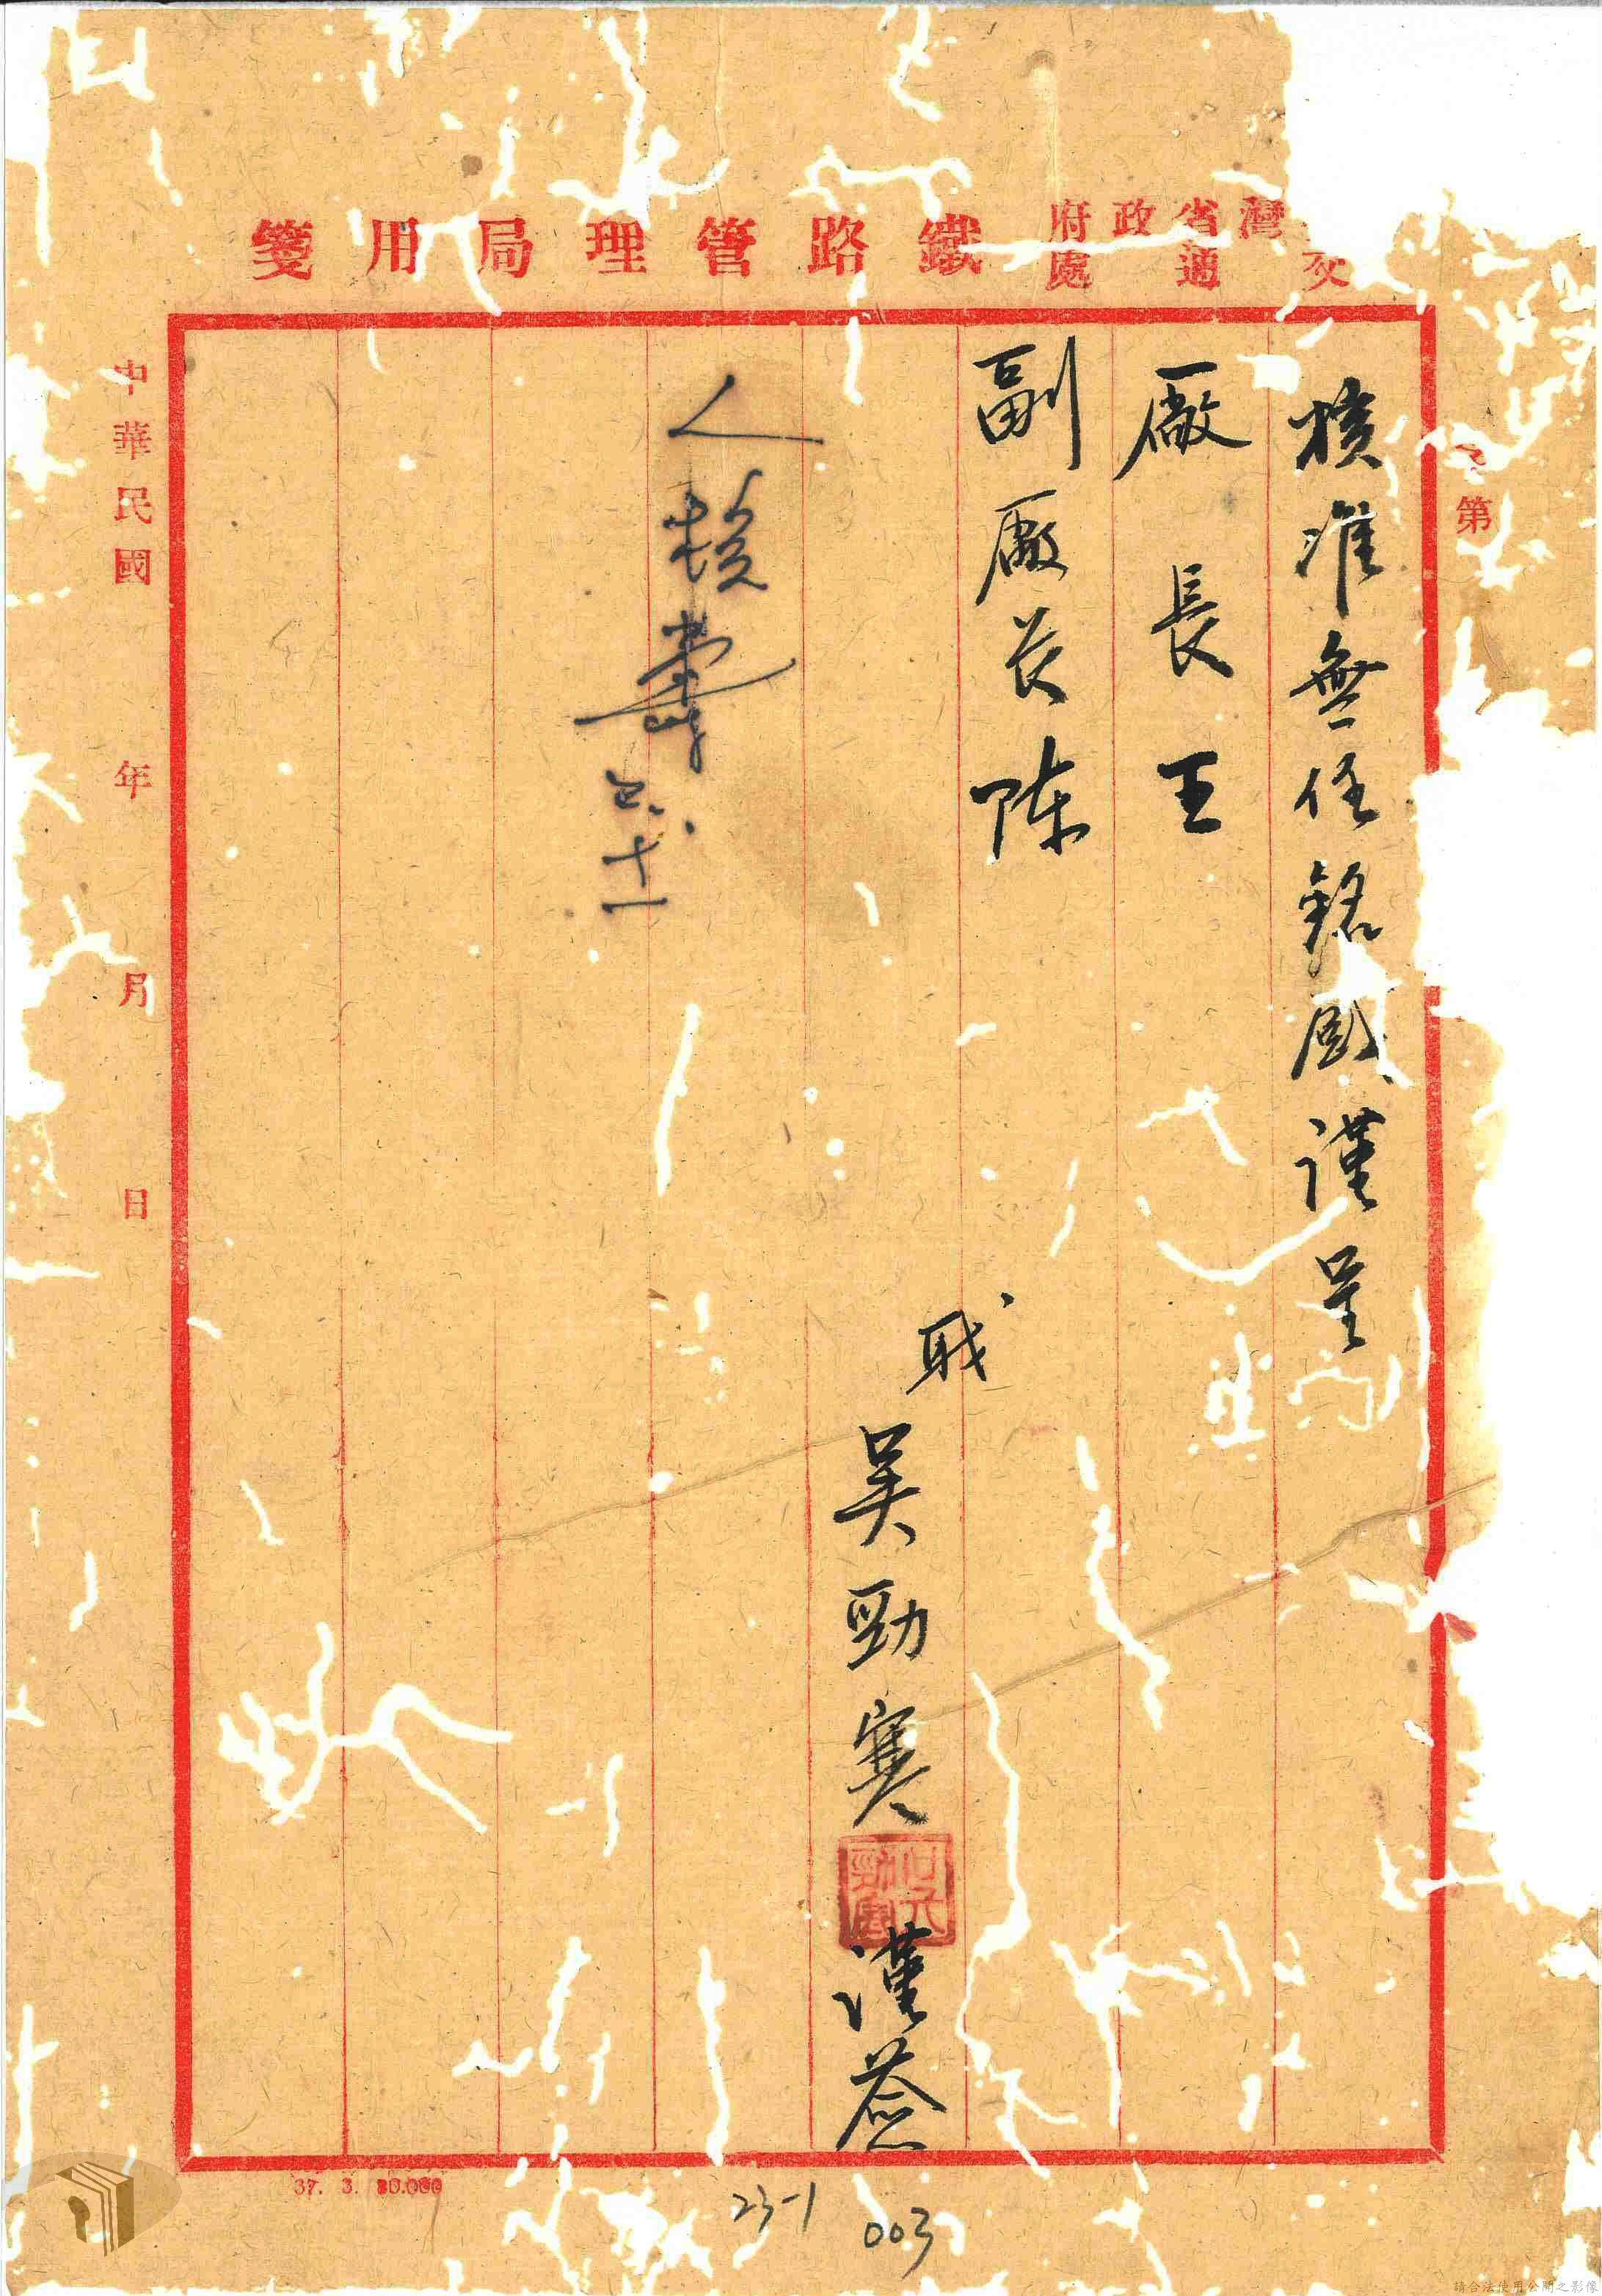 灣省政府
交通處
鐵路管理局用箋
第
核准無任銘感謹呈
廠長王
副廠長陳
職
吳勁寒謹簽
人核
六、十一
中華民國 年 月 日
37. 3. 80.000
23-1
003
請合法使用公開之影像